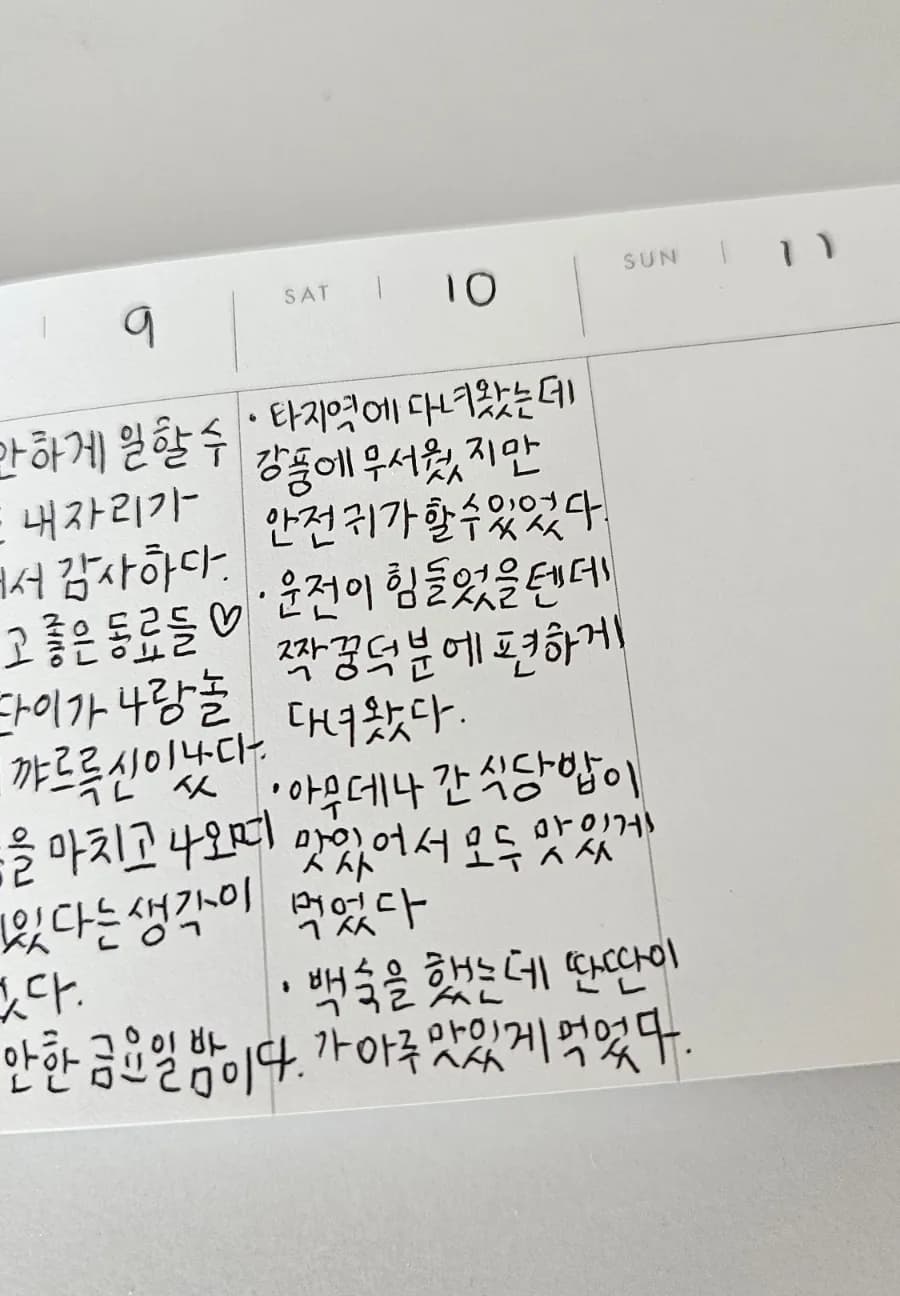 9
안하게 일할 수
내자리가
서 감사하다.
고 좋은 동료들 ♡
이가 나랑 놀
꺄르륵 신이났다.
을 마치고 나오며
있다는 생각이
다.
안한 금요일 밤이다.
SAT | 10
· 타지역에 다녀왔는데
강풍에 무서웠지만
안전귀가 할수있었다.
· 운전이 힘들었을텐데
짝꿍덕분에 편하게
다녀왔다.
· 아무데나 간 식당밥이
맛있어서 모두 맛있게
먹었다
· 백숙을 했는데 딴딴이
가 아주 맛있게 먹었다.
SUN | 11